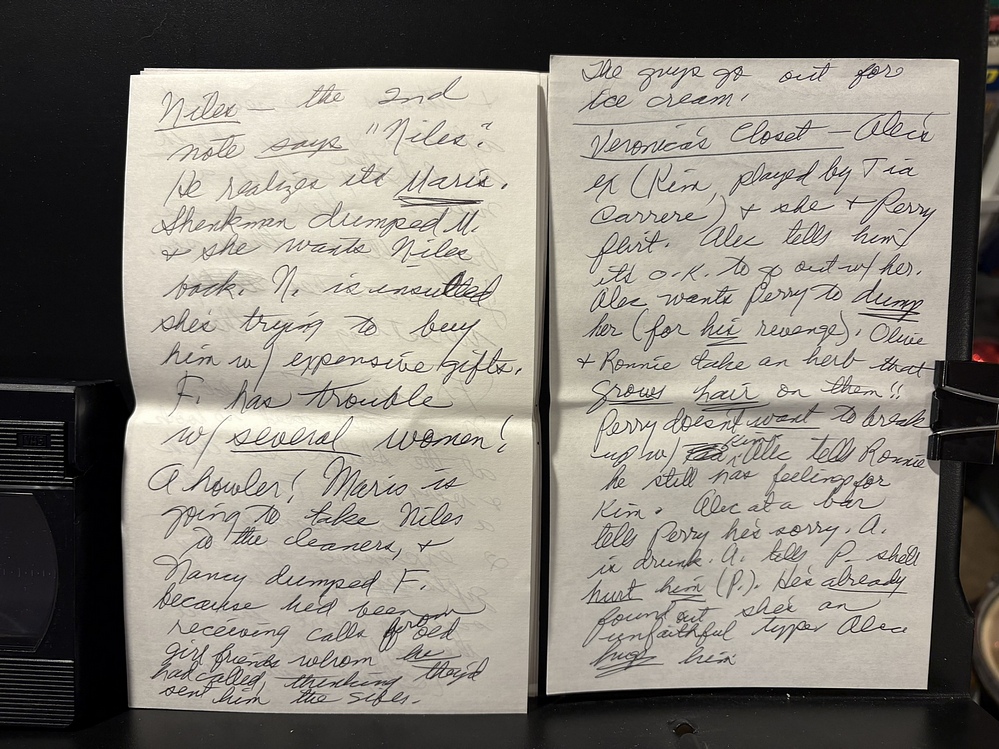 Niles — the 2nd
note says "Niles".
He realizes its Maris.
Shenkman dumped M.
& she wants Niles
back. N. is insulted
she's trying to buy
him w/ expensive gifts.
F. has trouble
w/ several women!
A howler! Maris is
going to take Niles
to the cleaners, &
Nancy dumped F.
because he'd been
receiving calls from old
girlfriends whom he
had called thinking they'd
sent him the
The guys go out for
ice cream.
Veronica's Closet — Alec's
ex (Kim, played by Tia
Carrere) & she & Perry
flirt. Alec tells him
its o.k. to go out w/ her.
Alec wants Perry to dump
her (for his revenge). Olive
& Ronnie take an herb that
grows hair on them!!
Perry doesn't want to break
up w/ Kim. Alec tells Ronnie
he still has feelings for
Kim. Alec at a bar
tells Perry he's sorry. A.
is drunk. A. tells P. she'll
hurt him (P.). He's already
found out she's an
unfaithful type. Alec
hugs him